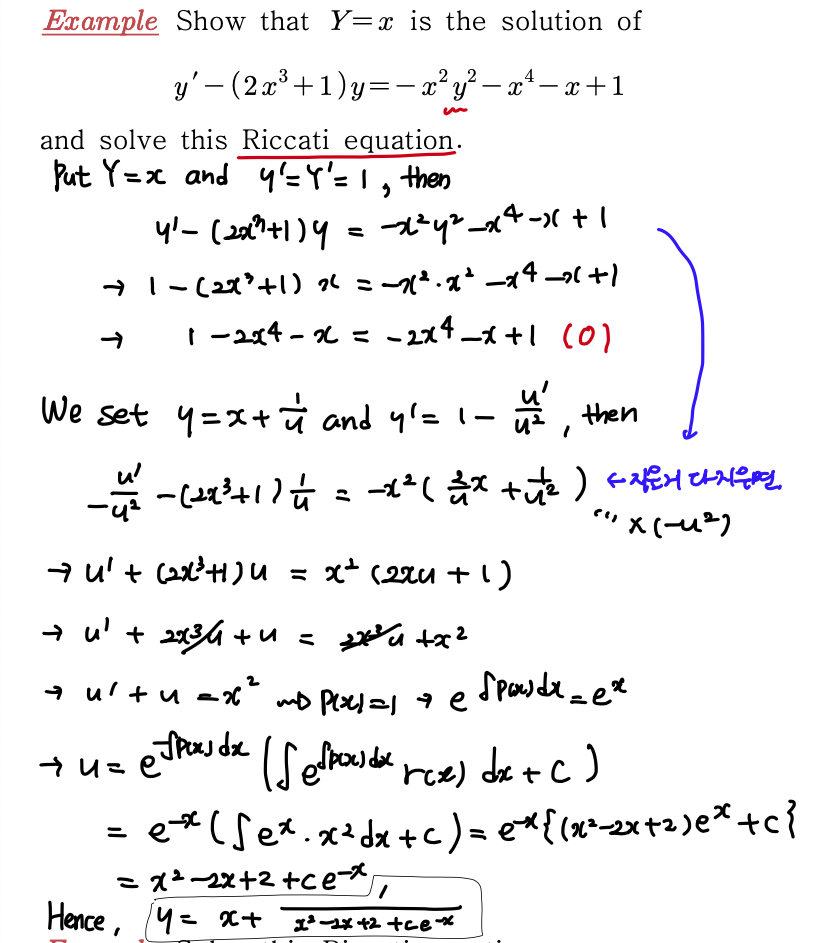 Example Show that Y=x is the solution of
y′−(2x³+1)y=−x²y²−x⁴−x+1
and solve this Riccati equation.
Put Y=x and y'=Y'=1, then
y'−(2x³+1)y = −x²y²−x⁴−x+1
→ 1−(2x³+1)x = −x²·x²−x⁴−x+1
→ 1−2x⁴−x = −2x⁴−x+1 (O)
We set y=x+1/u and y'=1−u'/u², then
−u'/u²−(2x³+1)1/u = −x²(2/u x+1/u²) ← 다 지우면
x(−u²)
→ u'+(2x³+1)u = x²(2xu+1)
→ u'+2x³u+u = 2x³u+x²
→ u'+u=x² ⇒ P(x)=1 → e^∫p(x)dx=e^x
→ u=e^−∫p(x)dx(∫e^∫p(x)dx r(x) dx+C)
= e^−x(∫e^x·x²dx+c)=e^−x{(x²−2x+2)e^x+c}
= x²−2x+2+ce^−x
Hence, y= x+ 1/(x²−2x+2+ce^−x)